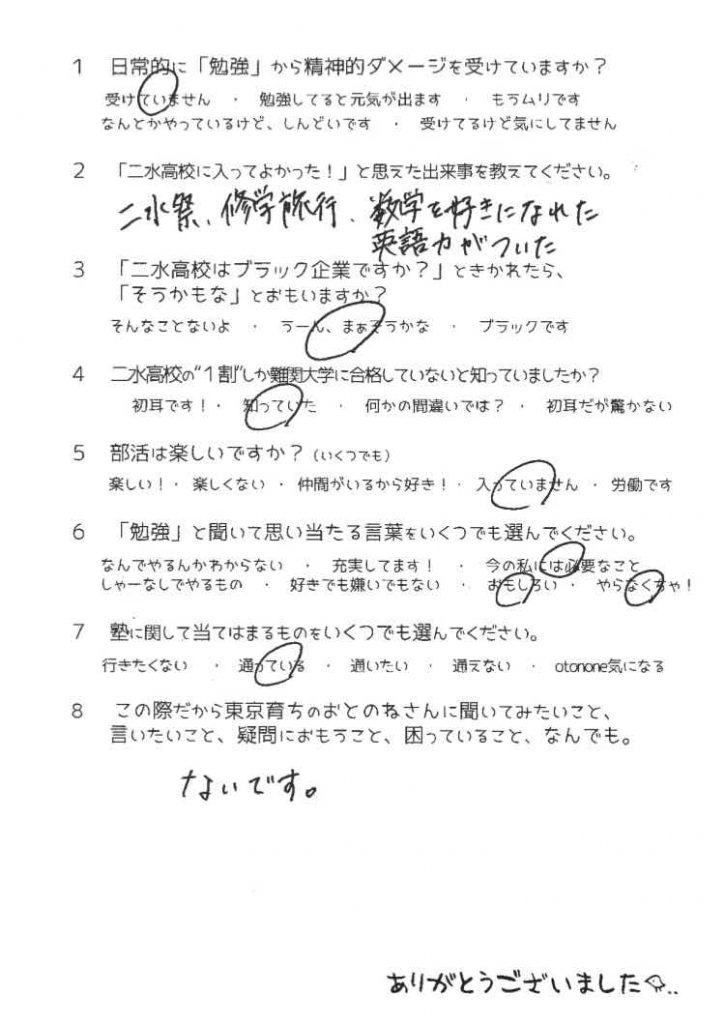 1 日常的に「勉強」から精神的ダメージを受けていますか？
受けていません ・ 勉強してると元気が出ます ・ もうムリです
なんとかやっているけど、しんどいです ・ 受けてるけど気にしてません
2 「二水高校に入ってよかった！」と思えた出来事を教えてください。
二水祭、修学旅行、数学を好きになれた
英語力がついた
3 「二水高校はブラック企業ですか？」ときかれたら、
「そうかもな」とおもいますか？
そんなことないよ ・ うーん、まぁそうかな ・ ブラックです
4 二水高校の“１割”しか難関大学に合格していないと知っていましたか？
初耳です！・ 知っていた ・ 何かの間違いでは？ ・ 初耳だが驚かない
5 部活は楽しいですか？（いくつでも）
楽しい！・ 楽しくない ・ 仲間がいるから好き！・ 入っていません ・ 労働です
6 「勉強」と聞いて思い当たる言葉をいくつでも選んでください。
なんでやるんかわからない ・ 充実してます！ ・ 今の私には必要なこと
しゃーなしでやるもの ・ 好きでも嫌いでもない ・ おもしろい ・ やらなくちゃ！
7 塾に関して当てはまるものをいくつでも選んでください。
行きたくない ・ 通っている ・ 通いたい ・ 通えない ・ otonone気になる
8 この際だから東京育ちのおとのねさんに聞いてみたいこと、
言いたいこと、疑問におもうこと、困っていること、なんでも。
ないです。
ありがとうございました